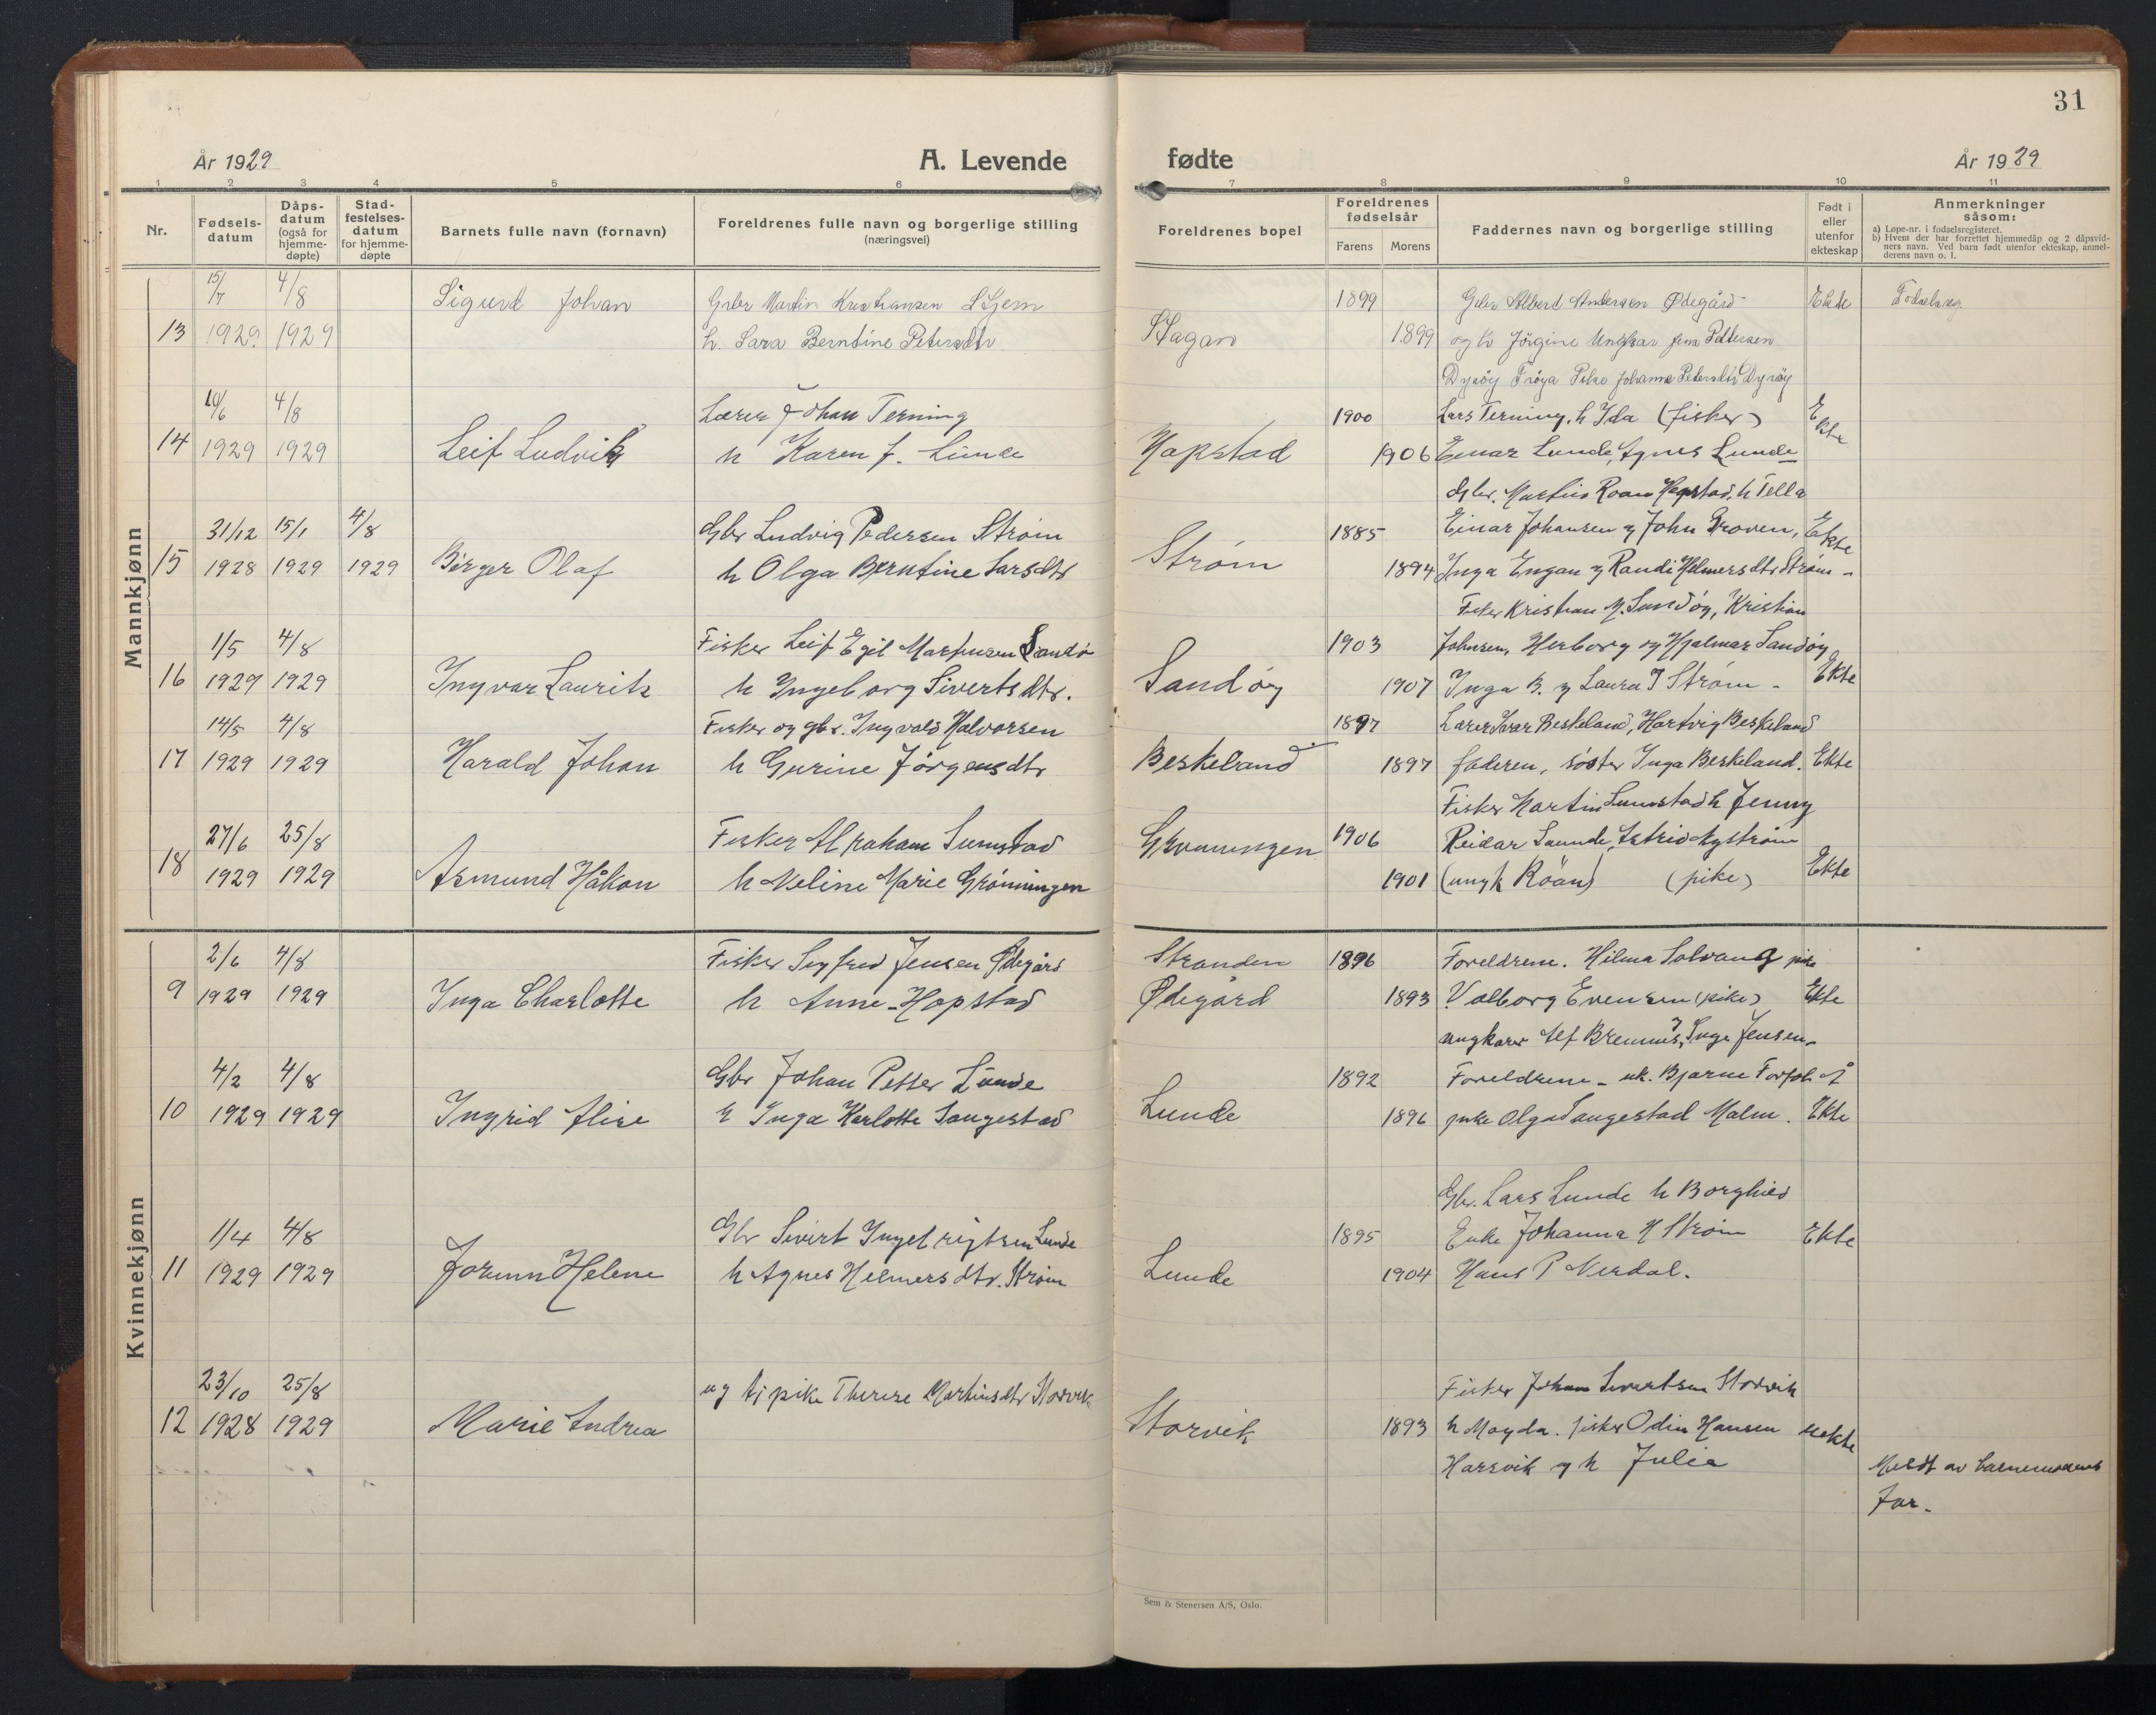 31
År 1929
A. Levende
fødte
År 1929
1 2 3 4 5 6 7 8 9 10 11
Nr.
Fødsels-
datum
Dåps-
datum
(også for
hjemme-
døpte)
Stad-
festelses-
datum
for hjemme-
døpte
Barnets fulle navn (fornavn)
Foreldrenes fulle navn og borgerlige stilling
(næringsvei)
Foreldrenes bopel
Foreldrenes
fødselsår
Farens
Morens
Faddernes navn og borgerlige stilling
Født i
eller
utenfor
ekteskap
Anmerkninger
såsom:
a) Løpe-nr. i fødselsregisteret.
b) Hvem der har forrettet hjemmedåp og 2 dåpsvid-
ners navn. Ved barn født utenfor ekteskap, anmel-
derens navn o. l.
Mannkjønn
15/7 4/8 Sigurd Johan Gbr Martin Kristiansen 1899 Gbr Albert Andersen Ødegård Ekte
13 1929 1929 h. Sara Berntine Petersdtr 1899 og h Jörgine Ungkar Jens Pettersen
Dyrøy Frøya Pike Johanna Petersdtr, Dyrøy
10/6 4/8 Lærer Johan Terning 1900 Lars Terning, h Ida (fisker) Ekte
14 1929 1929 Leif Ludvik h Karen J. Lunde Hopstad 1906 Einar Lunde, Agnes Lunde
Gbr. Martin Roan Hopstad, h Tella
31/12 15/1 4/8 Gbr Ludvig Pedersen Strøm 1885 Einar Johansen og John Groven, Ekte
15 1928 1929 1929 Birger Olaf h Olga Berntine Larsdtr Strøm 1894 Inga Engan og Randi Helmersdtr Strøm -
Fisker Kristian M. Sandøy, Kristian
1/5 4/8 Fisker Leif Egil Martinsen Sandø 1903 Johnsen, Herborg og Hjalmar Sandøy
16 1929 1929 Ingvar Laurits h Ingeborg Sivertsdtr. Sandøy 1907 Inga B. og Laura J Strøm - Ekte
14/5 4/8 Fisker og gbr. Ingvald Halvorsen 1897 Lærer Ivar Beskeland, Hartvig Beskeland
17 1929 1929 Harald Johan h Gurine Jørgensdtr Beskeland 1897 faderen, søster Inga Beskeland. Ekte
Fisker Martin Sumstad h Jenny
27/6 25/8 Fisker Abraham Sumstad 1906 Reidar Saunde, Astrid Nystrøm
18 1929 1929 Asmund Håkon h Neline Marie Grønningen Grønningen 1901 (ungk Roan) (pike) Ekte
Kvinnekjønn
2/6 4/8 Fisker Sigfred Jensen Ødegård Stranden 1896 Foreldrene. Hilma Solvang pike
9 1929 1929 Inga Charlotte h Anne Hopstad Ødegård 1893 Valborg Evensen (pike) Ekte
ungkarer Alf Bremnes, og Inge Jensen
4/2 4/8 Gbr Johan Petter Lunde 1892 Foreldrene - uk. Bjarne
10 1929 1929 Ingrid Alise h Inga Harlotte Saugestad Lunde 1896 pike Olga Saugestad Malm. Ekte
Gbr. Lars Lunde h Borghild
1/4 4/8 Gbr Sivert Ingebrigtsen Lunde 1895 Enke Johanna H Strøm Ekte
11 1929 1929 Jorunn Helene h Agnes Helmersdtr. Strøm Lunde 1904 Hans P Verdal.
23/10 25/8 ug tj pike Therese Martinsdtr Storvik Fisker Johan Sivertsen Storvik
12 1928 1929 Marie Andrea Storvik 1893 h Magda. fisker Odin Hansen Uekte
Harsvik og h Julia Meldt av barnemorens
far.
Sem & Stenersen A/S, Oslo.